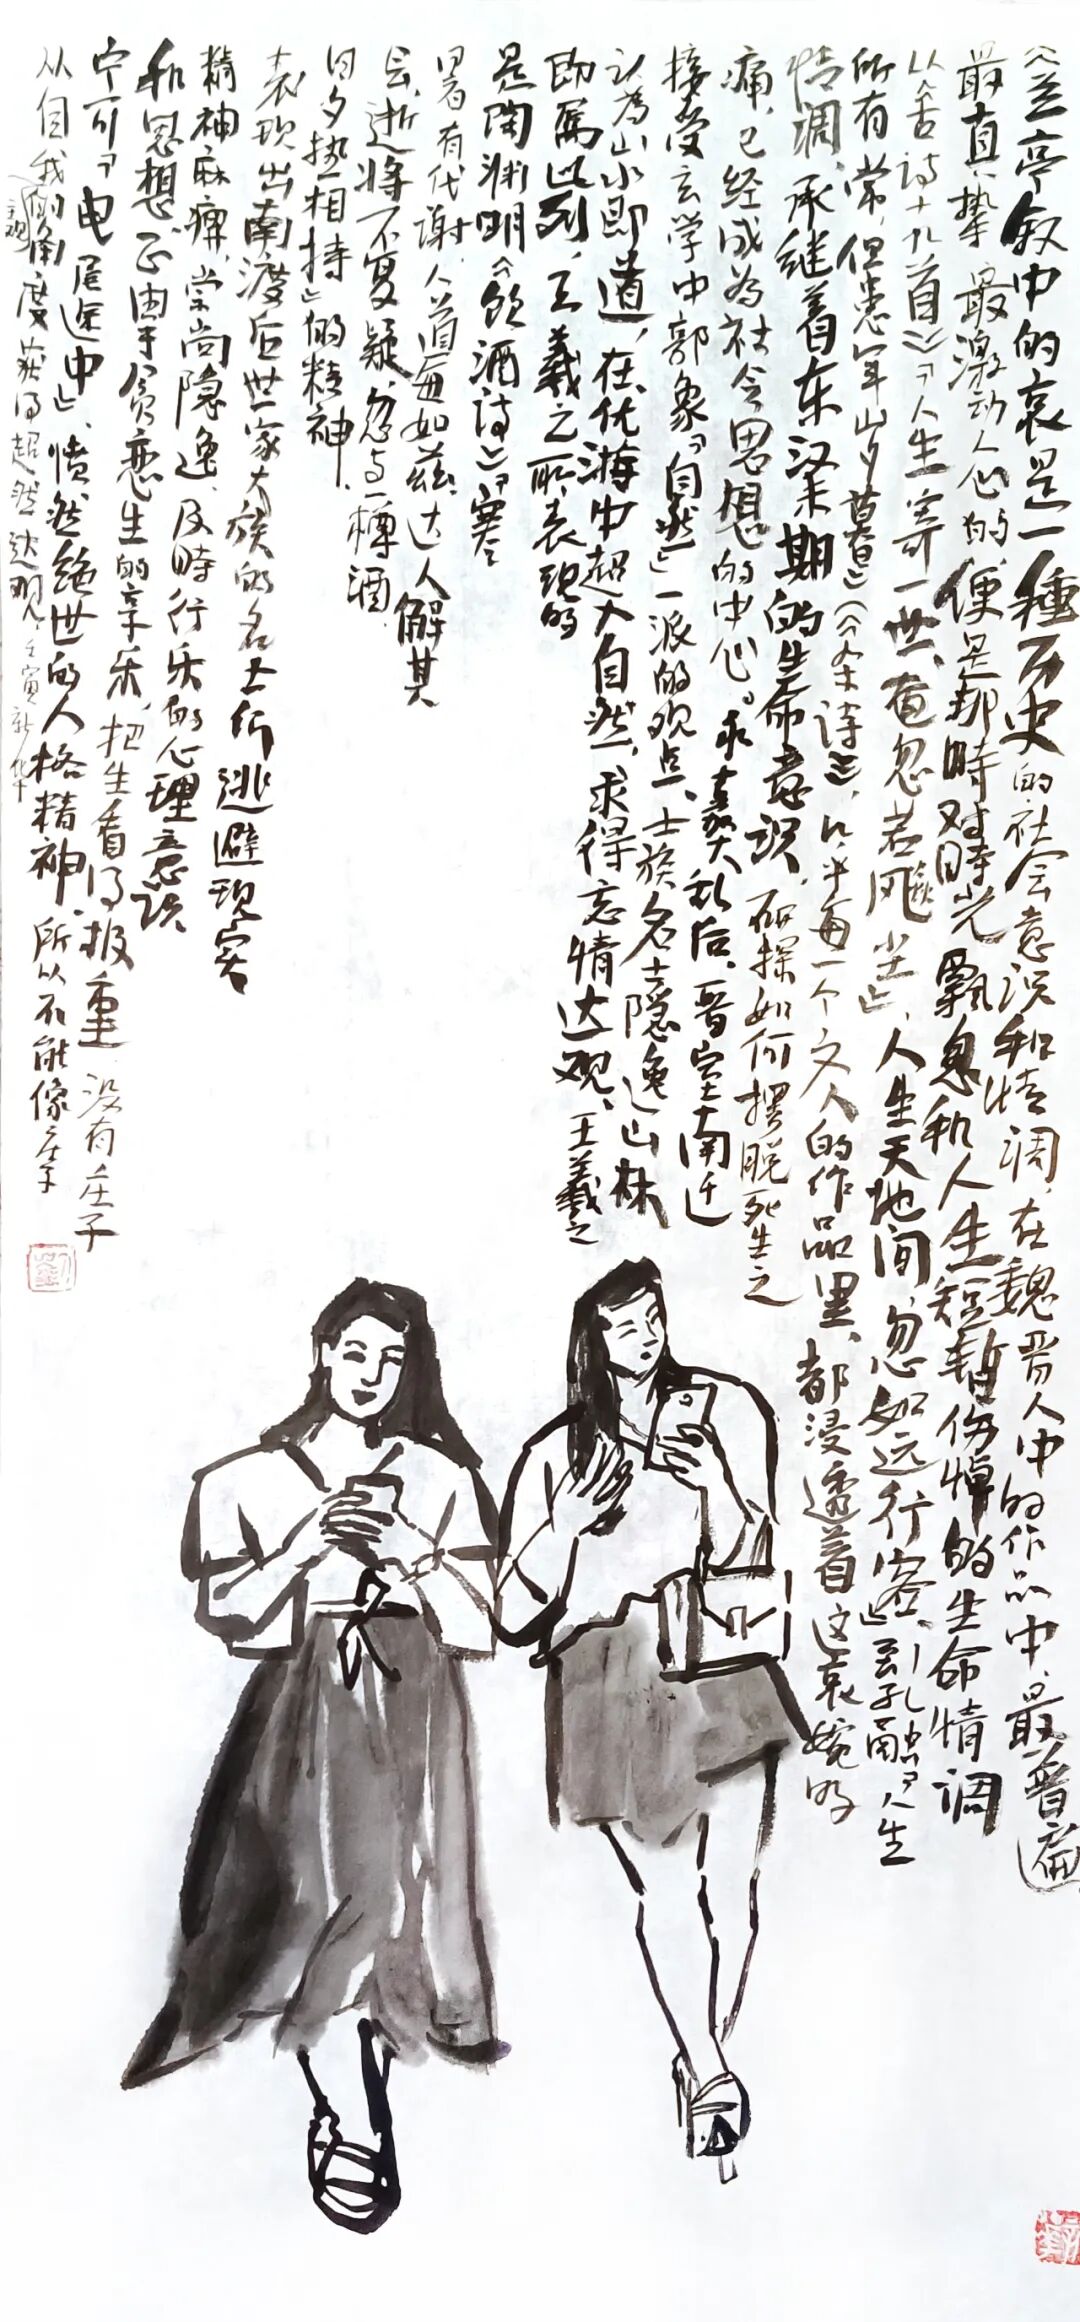 《兰亭叙中的哀是一種历史的社会意识和情调，在魏晋人中的作品中，最普遍
最真挚、最激动人心的、便是那時对時光飘忽和人生短暂伤悼的生命情调
从《古诗十九首》「人生寄一世、奄忽若飚尘」，人生天地间，忽如远行客」到孔融「人生
所有常，但患年岁暮」《杂诗》，几乎每一个文人的作品里、都浸透着这哀婉的
情调、承继着东汉末期的生命意识，研探如何摆脱死生之
痛，已经成为社会思想的中心。永嘉大乱后、晋室南迁
接受玄学中郭象「自然」一派的观点、士族名士隐逸山林
认为山水即道，在优游中超入自然、求得忘情达观、王羲之
即属此列，王羲之所表现的
是陶渊明《饮酒诗》「寒
暑有代谢，人道每如兹，达人解其
会，逝将不复疑，忽与一樽酒，
日夕热相持」的精神，
表现出南渡后世家大族的名士们逃避现实
精神麻痹，崇尚隐逸、及時行乐的心理意识
和思想、正由于贪恋生的享乐，把生看得极重没有庄子
宁可「曳尾途中」、愤然绝世的人格精神，所以不能像庄子
从自我的角度获得超然达观，壬寅新华